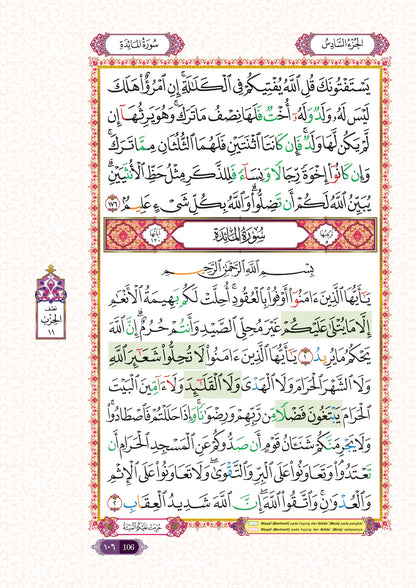 سُورَةُ المَائِدَةِ
الجُزْءُ السَّادِسُ
يَسْتَفْتُونَكَ قُلِ ٱللَّهُ يُفْتِيكُمْ فِى ٱلْكَلَٰلَةِ ۚ إِنِ ٱمْرُؤٌا۟ هَلَكَ
لَيْسَ لَهُۥ وَلَدٌ وَلَهُۥٓ أُخْتٌ فَلَهَا نِصْفُ مَا تَرَكَ ۚ وَهُوَ يَرِثُهَآ إِن
لَّمْ يَكُن لَّهَا وَلَدٌ ۚ فَإِن كَانَتَا ٱثْنَتَيْنِ فَلَهُمَا ٱلثُّلُثَانِ مِمَّا تَرَكَ ۚ
وَإِن كَانُوٓا۟ إِخْوَةً رِّجَالًا وَنِسَآءً فَلِلذَّكَرِ مِثْلُ حَظِّ ٱلْأُنثَيَيْنِ ۗ
يُبَيِّنُ ٱللَّهُ لَكُمْ أَن تَضِلُّوا۟ ۗ وَٱللَّهُ بِكُلِّ شَىْءٍ عَلِيمٌۢ ١٧٦
سُورَةُ المَائِدَة
بِسْمِ ٱللَّهِ ٱلرَّحْمَٰنِ ٱلرَّحِيمِ
يَٰٓأَيُّهَا ٱلَّذِينَ ءَامَنُوٓا۟ أَوْفُوا۟ بِٱلْعُقُودِ ۚ أُحِلَّتْ لَكُم بَهِيمَةُ ٱلْأَنْعَٰمِ
إِلَّا مَا يُتْلَىٰ عَلَيْكُمْ غَيْرَ مُحِلِّى ٱلصَّيْدِ وَأَنتُمْ حُرُمٌ ۗ إِنَّ ٱللَّهَ
يَحْكُمُ مَا يُرِيدُ ١ يَٰٓأَيُّهَا ٱلَّذِينَ ءَامَنُوا۟ لَا تُحِلُّوا۟ شَعَٰٓئِرَ ٱللَّهِ
وَلَا ٱلشَّهْرَ ٱلْحَرَامَ وَلَا ٱلْهَدْىَ وَلَا ٱلْقَلَٰٓئِدَ وَلَآ ءَآمِّينَ ٱلْبَيْتَ
ٱلْحَرَامَ يَبْتَغُونَ فَضْلًا مِّن رَّبِّهِمْ وَرِضْوَٰنًا ۚ وَإِذَا حَلَلْتُمْ فَٱصْطَادُوا۟ ۚ
وَلَا يَجْرِمَنَّكُمْ شَنَـَٔانُ قَوْمٍ أَن صَدُّوكُمْ عَنِ ٱلْمَسْجِدِ ٱلْحَرَامِ أَن
تَعْتَدُوا۟ ۘ وَتَعَاوَنُوا۟ عَلَى ٱلْبِرِّ وَٱلتَّقْوَىٰ ۖ وَلَا تَعَاوَنُوا۟ عَلَى ٱلْإِثْمِ
وَٱلْعُدْوَٰنِ ۚ وَٱتَّقُوا۟ ٱللَّهَ ۖ إِنَّ ٱللَّهَ شَدِيدُ ٱلْعِقَابِ ٢
نصف
الحزب
١١
Waqaf (Berhenti) pada hujung dan Ibtida' (Mula) pada pangkal
Waqaf (Berhenti) pada hujung dan Ibtida' (Mula) selepasnya
١٠٦ 106